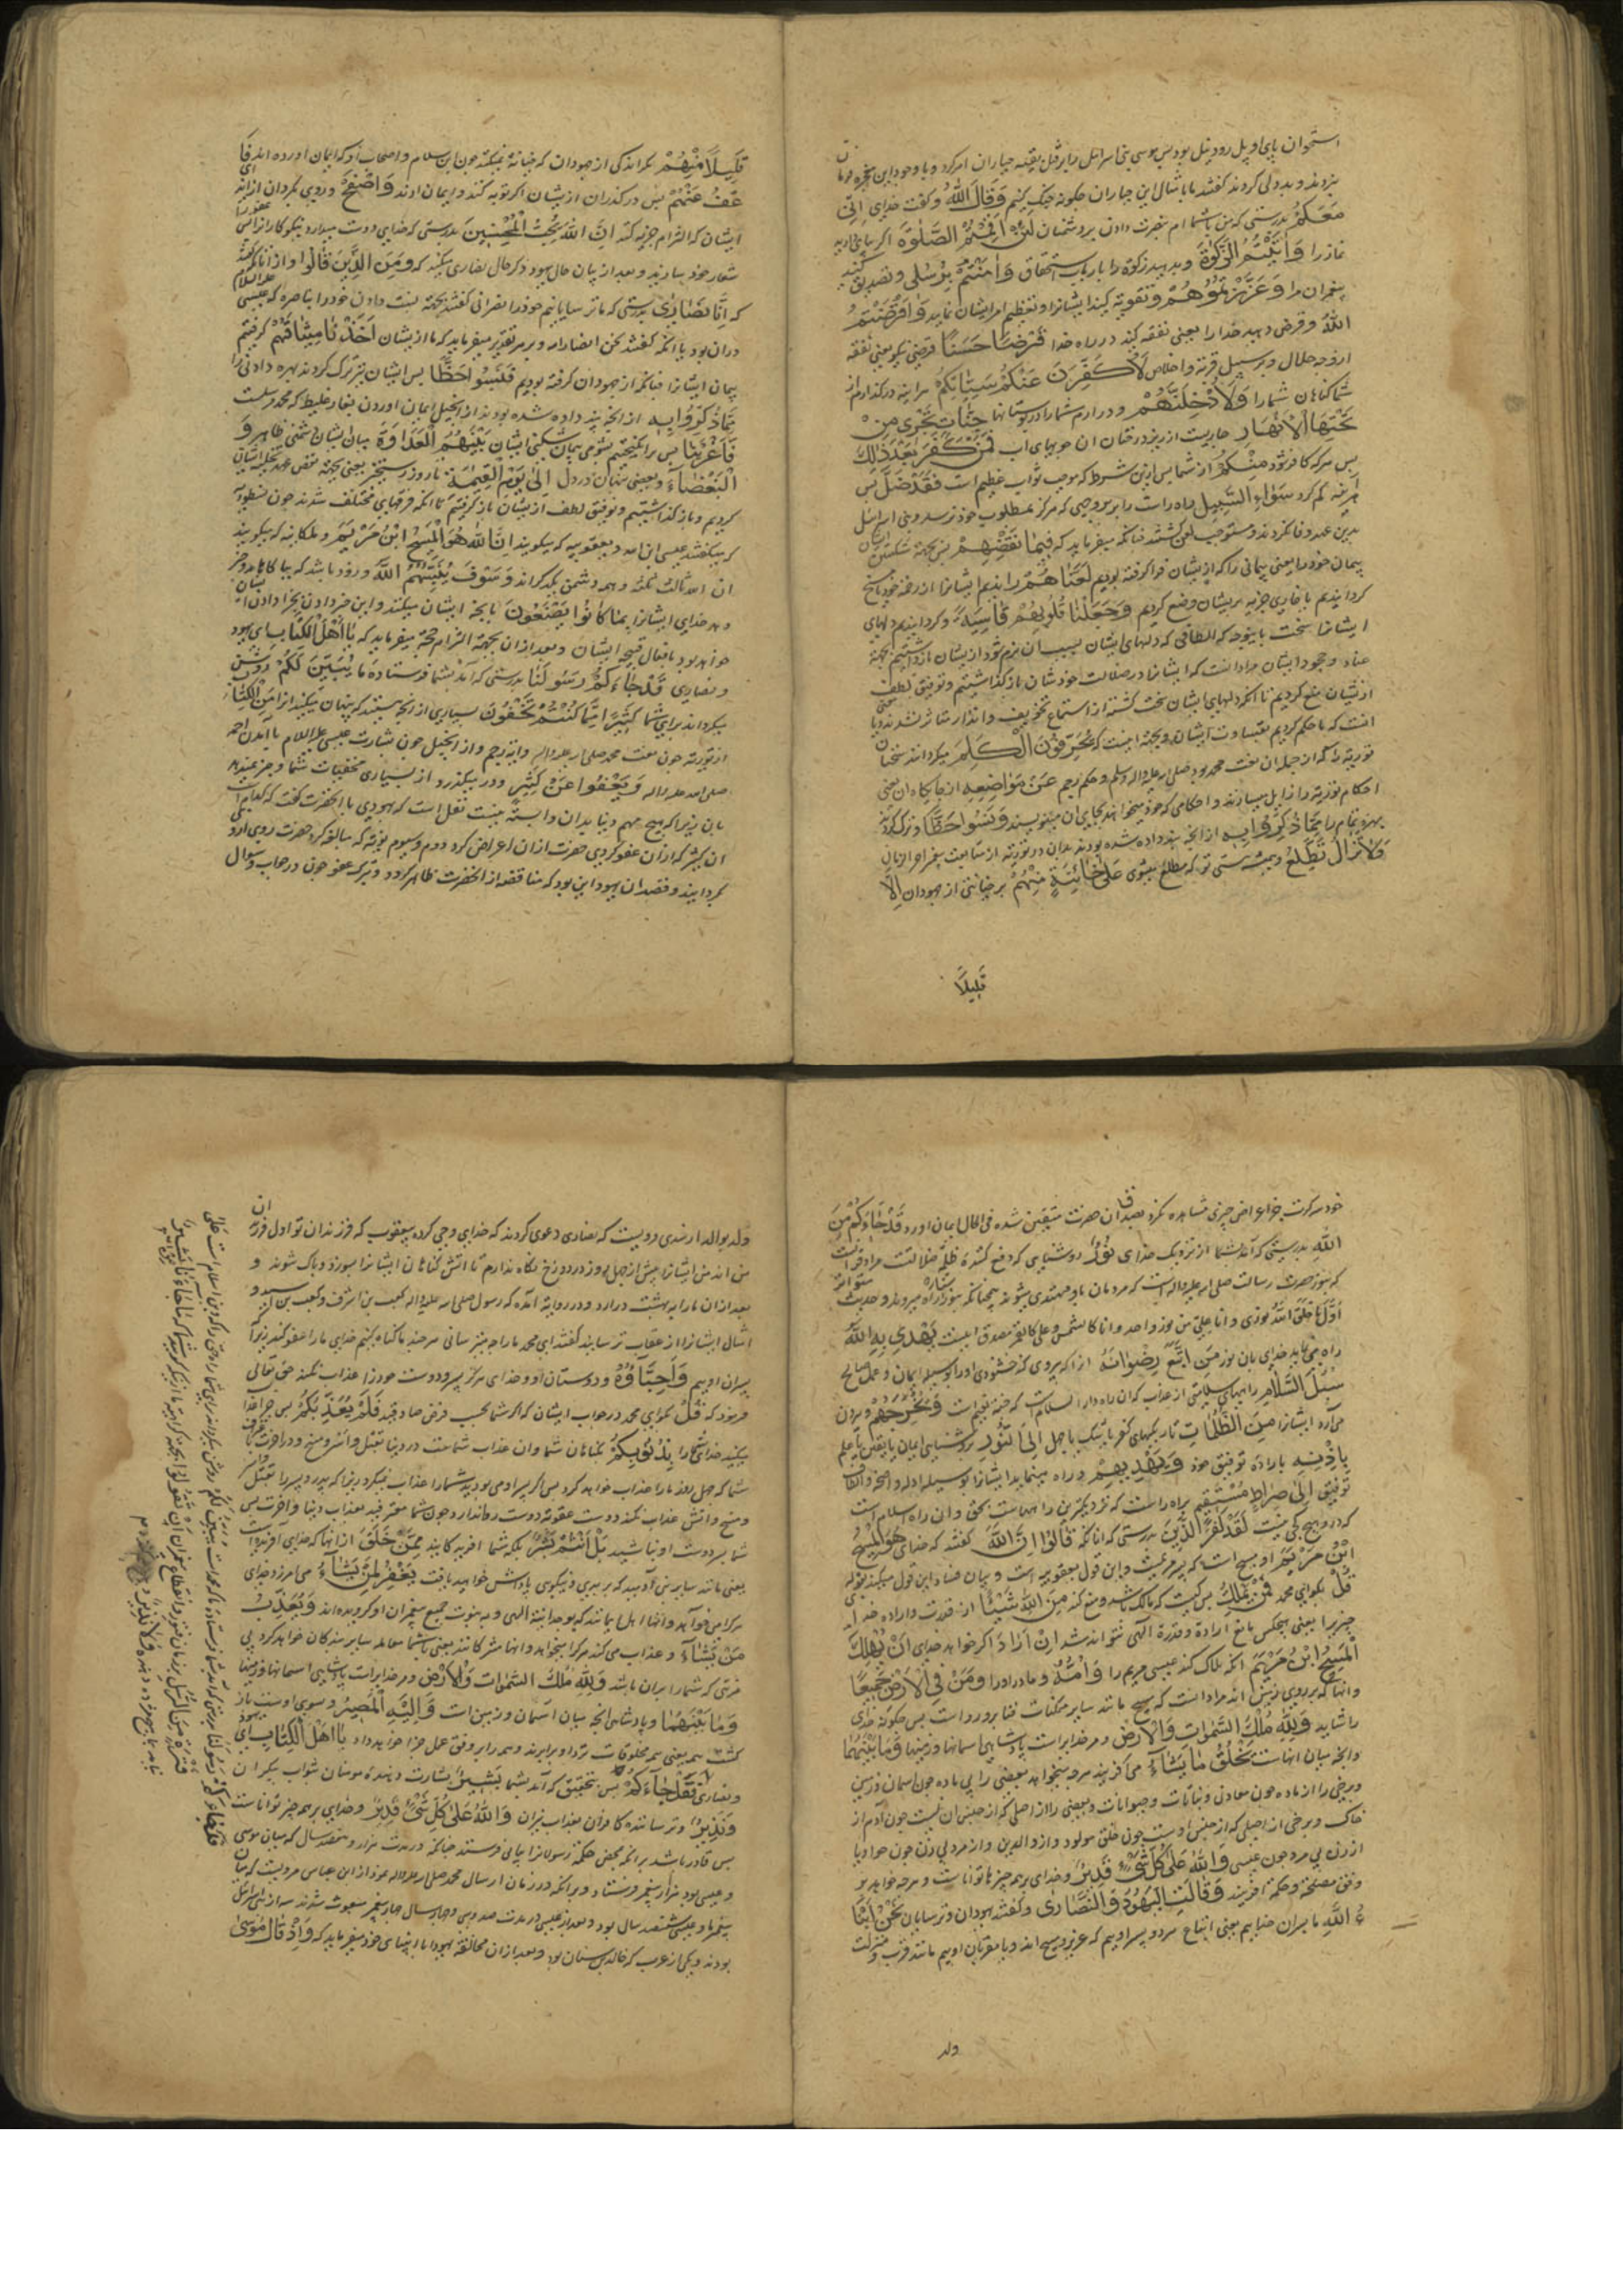 استخوان پای او پل رود نیل بود پس موسی بنی اسرائیل را بر قتل بقیه جباران امر کرد و با وجود این معجزه فرمان
نبردند و بد دلی کردند گفتند ما با امثال این جباران چگونه جنگ کنیم وَقَالَ اللَّهُ و گفت خدای اِنّی
مَعَكُمْ بدرستی که من با شماام بنصرت دادن بر دشمنان لَئِنْ اَقَمْتُمُ الصَّلٰوةَ اگر بپای دارید
نماز را وَاٰتَيْتُمُ الزَّكٰوةَ و بدهید زکوة را بارباب استحقاق وَاٰمَنْتُمْ بِرُسُلی و تصدیق کنید
پیغمبران مرا وَعَزَّرْتُمُوهُمْ و تقویة کنید ایشانرا و تعظیم امر ایشان نمایید وَاَقْرَضْتُمُ
اللّٰهَ و قرض دهید خدا را یعنی نفقه کنید در راه خدا قَرْضًا حَسَنًا قرضی نیکو یعنی نفقه
از وجه حلال و بر سبیل قربة و اخلاص لَاُكَفِّرَنَّ عَنْكُمْ سَيِّئَاتِكُمْ هر آینه درگذرانم از
شما گناهان شما را وَلَاُدْخِلَنَّهُمْ و درآرم شما را در بوستانها جَنَّاتٍ تَجْرِی مِنْ
تَحْتِهَا الْاَنْهَارُ جاریست از زیر درختان آن جویهای آب فَمَنْ كَفَرَ بَعْدَ ذٰلِكَ
پس هر که کافر شود مِنْكُمْ از شما پس ازین شرط که موجب ثواب عظیم است فَقَدْ ضَلَّ پس
هر آینه گم کرد سَوَاءَ السَّبِيلِ راه راست را بر وجهی که هرگز بمطلوب خود نرسد و بنی اسرائیل
بدین عهد وفا نکردند و مستوجب لعن گشتند چنانکه میفرماید که فَبِمَا نَقْضِهِمْ پس بجهة شکستن ایشان
پیمان خود را یعنی پیمانی را که از ایشان فراگرفته بودیم لَعَنَّاهُمْ راندیم ایشانرا از رحمت خود یا مسخ
گردانیدیم یا خواری جزیه بریشان وضع کردیم وَجَعَلْنَا قُلُوبَهُمْ قَاسِيَةً و گردانیدیم دلهای
ایشانرا سخت باینوجه که الطافی که دلهای ایشان بسبب آن نرم شود از یشان بازداشتیم بجهة
عناد و جحود ایشان مراد آنست که ایشانرا در ضلالت خودشان بازگذاشتیم و توفیق لطف
ازیشان منع کردیم تا آنکه دلهای ایشان سخت گشته از استماع تخویف و انذار متاثر نشدند و یا معنی
آنست که ما حکم کردیم بقساوت ایشان و بجهة اینست که يُحَرِّفُونَ الْكَلِمَ میگردانند سخنان
توریة را که از جمله آن نعت محمد بود صلی الله علیه و آله وسلم و حکم رجم عَنْ مَوَاضِعِهِ از جایگاه آن یعنی
احکام توریة را زایل میسازند و احکامی که خود میخواهند بجای آن مینویسند وَنَسُوا حَظًّا و ترک کردند
بهره تمام را مِمَّا ذُكِّرُوا بِهِ از آنچه پند داده شده بودند بدان در توریة از متابعت پیغمبر آخر الزمان
وَلَا تَزَالُ تَطَّلِعُ و همیشه هستی تو که مطلع میشوی عَلٰى خَائِنَةٍ مِنْهُمْ بر خیانتی از یهودان اِلَّا
قَلِيلًا
قَلِيلًا مِنْهُمْ مگر اندکی از جهودان که خیانة نمیکنند چون ابن سلام و اصحاب او که ایمان آورده اند فَا
عْفُ عَنْهُمْ پس درگذران ازیشان اگر توبه کنند و ایمان آرند وَاصْفَحْ و روی بگردان از ایذای
ایشان که التزام جزیه کنند اِنَّ اللّٰهَ يُحِبُّ الْمُحْسِنِينَ بدرستی که خدای دوست میدارد نیکوکارانرا که عفو را
شعار خود سازند و بعد از بیان حال یهود ذکر حال نصاری میکند که وَمِنَ الَّذِينَ قَالُوا و از آنانکه گفتند
که اِنَّا نَصَارٰى بدرستی که ما ترسایانیم خود را نصرانی گفتند بجهة نسبت دادن خود را بناصره که عیسی علیه السلام
دران بود یا آنکه گفتند نحن انصار الله و بر هر تقدیر میفرماید که ما ازیشان اَخَذْنَا مِيثَاقَهُمْ گرفتیم
پیمان ایشانرا چنانکه از یهودان گرفته بودیم فَنَسُوا حَظًّا پس ایشان نیز ترک کردند بهره دادنی را
مِمَّا ذُكِّرُوا بِهِ از آنچه پند داده شده بودند از انجیل ایمان آوردن بفارقلیط که محمد مرسلست
فَاَغْرَيْنَا پس برانگیختیم بشومی پیمان شکنی ایشان بَيْنَهُمُ الْعَدَاوَةَ میان ایشان دشمنی ظاهر وَ
الْبَغْضَاءَ و بغض پنهان در دل اِلٰى يَوْمِ الْقِيٰمَةِ تا روز رستخیز یعنی بجهة نقض عهد تخلیه ایشان
کردیم و بازگذاشتیم و توفیق لطف ازیشان بازگرفتیم تا آنکه فرقهای مختلف شدند چون نسطوریه
که میگفتند عیسی ابن الله و یعقوبیه که میگویند اِنَّ اللّٰهَ هُوَ الْمَسِيحُ ابْنُ مَرْيَمَ و ملکانیه که میگویند
ان الله ثالث ثلثه و همه دشمن یکدیگراند وَسَوْفَ يُنَبِّئُهُمُ اللّٰهُ و زود باشد که بیاگاهاند و خبر
دهد خدای ایشانرا بِمَا كَانُوا يَصْنَعُونَ بآنچه ایشان میکنند و این خبر دادن بجزا دادن ایشان
خواهد بود بافعال قبیحه ایشان و بعد ازان بجهة التزام حجة میفرماید که يَا اَهْلَ الْكِتَابِ ای یهود
و نصاری قَدْ جَاءَكُمْ رَسُولُنَا بدرستی که آمد بشما فرستاده ما يُبَيِّنُ لَكُمْ روشن
میگرداند برای شما كَثِيرًا مِمَّا كُنْتُمْ تُخْفُونَ بسیاری از آنچه هستید که پنهان میکنید از مِنَ الْكِتَابِ
از توریة چون نعت محمد صلی الله علیه و آله و آیة رجم و از انجیل چون بشارت عیسی علیه السلام بآمدن احمد
صلی الله علیه و آله وَيَعْفُوا عَنْ كَثِيرٍ و درمیگذرد از بسیاری مخفیات شما و خبر نمیدهد
بآن زیرا که هیچ مهم دینی بدان وابسته نیست نقل است که یهودی با آنحضرت گفت که کدام است
آن بیشتر که ازان عفو کردی حضرت ازان اعراض کرد دوم و سیوم نوبة که مبالغه کرد حضرت روی ازو
بگردانید و قصد آن یهود این بود که مناقضه از آنحضرت ظاهر گردد و بترک عفو چون در جواب سؤال
خود سرکرت بجز اعراض چیزی مشاهده نکرد بصدق آن حضرت متیقن شده فی الحال ایمان آورد قَدْ جَاءَكُمْ مِنَ
اللّٰهِ بدرستی که آمد بشما از نزدیک خدای نُورٌ روشنایی که دفع کننده ظلمة ضلالتست مراد قرآنست
که بنور حضرت رسالت صلی الله علیه و آله است که مردمان باو مهتدی میشوند همچنانکه بنور ستاره راه میبرند و حدیث متواتر
اَوَّلُ مَا خَلَقَ اللّٰهُ نوری و انا و علی من نور واحد و انا کالشمس و علی کالقمر مصدق اینست يَهْدِی بِهِ اللّٰهُ
راه می نماید خدای بآن نور مَنِ اتَّبَعَ رِضْوَانَهُ آنرا که پیروی کند خشنودی او را بوسیله ایمان و عمل صالح
سُبُلَ السَّلَامِ راههای سلامتی از عذاب که آن راه دار السلامست که جنة نعیم است وَيُخْرِجُهُمْ و بیرون
می آرد ایشانرا مِنَ الظُّلُمَاتِ تاریکیهای کفر یا شک یا جهل اِلَى النُّورِ بروشنایی ایمان یا یقین یا علم
بِاِذْنِهِ باراده توفیق خود وَيَهْدِيهِمْ و راه مینماید ایشانرا بوسیله ادله واضحه و الطاف
توفیق اِلٰى صِرَاطٍ مُسْتَقِيمٍ براه راست که نزدیکترین راههاست بحق و آن راه اسلام است
که درو هیچ کجی نیست لَقَدْ كَفَرَ الَّذِينَ بدرستی که آنانکه قَالُوا اِنَّ اللّٰهَ گفتند که خدای هُوَ الْمَسِيحُ
ابْنُ مَرْيَمَ او مسیح است که پسر مریمست و این قول یعقوبیه است و بیان فساد این قول میکند بقوله
قُلْ بگو ای محمد فَمَنْ يَمْلِكُ پس کیست که مالک باشد و منع کند مِنَ اللّٰهِ شَيْئًا از قدرت و اراده خدای
چیزیرا یعنی هیچکس مانع ارادة و قدرة الهی نتواند شد اِنْ اَرَادَ اگر خواهد خدای اَنْ يُهْلِكَ
الْمَسِيحَ ابْنَ مَرْيَمَ آنکه هلاک کند عیسی مریم را وَاُمَّهُ و مادر او را وَمَنْ فِی الْاَرْضِ جَمِيعًا
و آنها که بر روی زمین اند مراد آنست که مسیح مانند سایر ممکنات فنا برو رواست پس چگونه خدای
را شاید وَلِلّٰهِ مُلْكُ السَّمٰوَاتِ وَالْاَرْضِ و مر خدایراست پادشاهی آسمانها و زمینها وَمَا بَيْنَهُمَا
و آنچه میان آنهاست يَخْلُقُ مَا يَشَاءُ می آفریند هرچه میخواهد بعضی را بی ماده چون آسمان و زمین
و برخی را از ماده چون معادن و نباتات و حیوانات و بعضی را از اصلی که از جنس آن نیست چون آدم از
خاک و برخی از اصلی که از جنس اوست چون خلق مولود و از والدین و از مرد بی زن چون حوا و یا
از زن بی مرد چون عیسی وَاللّٰهُ عَلٰى كُلِّ شَيْءٍ قَدِيرٌ و خدای بر همه چیزها تواناست و هرچه خواهد بر
وفق مصلحة و حکمة آفریند وَقَالَتِ الْيَهُودُ وَالنَّصَارٰى و گفتند یهودان و ترسایان نَحْنُ اَبْنَا
ءُ اللّٰهِ ما پسران خداییم یعنی اتباع مر دو پسر اوییم که عزیر و مسیح اند و یا مقربان اوییم مانند قرب و منزلت
ولد
ولد بوالد ارشدی و رویست که نصاری دعوی کردند که خدای وحی کرده بیعقوب که فرزندان تو اول فرزندان
من اند من ایشانرا بیش از چهل روز در دوزخ نگاه ندارم تا آتش گناهان ایشانرا بسوزد و پاک شوند و
بعد ازان ما را به بهشت درآرد و در روایة آمده که رسول صلی الله علیه و آله کعب بن اشرف و کعب بن اسید و
امثال ایشانرا از عقاب ترسانید گفتند ای محمد ما را چه میترسانی هر چند ما گناه کنیم خدای ما را عفو کند زیرا
پسران اوییم وَاَحِبَّاؤُهُ و دوستان او و خدای هرگز پسر و دوست خود را عذاب نکند حق تعالی
فرمود که قُلْ بگو ای محمد در جواب ایشان که اگر شما بحسب فرض صادقید فَلِمَ يُعَذِّبُكُمْ پس چرا عذاب
میکند خدای شما را بِذُنُوبِكُمْ بگناهان شما و آن عذاب شماست در دنیا بقتل و اسر و مسخ و در آخرت
شما که چهل روز ما را عذاب خواهد کرد پس اگر پسر او می بودید شما را عذاب نمیکرد زیرا که پدر پسر را بقتل
و مسخ و آتش عذاب نکند و دوست عقوبة دوست روا ندارد و چون شما معترفید بعذاب دنیا و آخرت پس
شما پسر و دوست او نباشید بَلْ اَنْتُمْ بَشَرٌ بلکه شما آفریدگانید مِمَّنْ خَلَقَ از آنها که خدای آفریده است
یعنی مانند سایر بنی آدمید که بر بدی و نیکویی پاداش خواهید یافت يَغْفِرُ لِمَنْ يَشَاءُ می آمرزد خدای
هر کرا می خواهد و آنها اهل ایمانند که بوحدانیة الهی و به نبوت جمیع پیغمبران او گرویده اند وَيُعَذِّبُ
مَنْ يَشَاءُ و عذاب می کند هر کرا میخواهد و آنها مشرکانند یعنی با شما معامله سایر بندگان خواهد کرد بی
مزیتی که شما را بران باشد وَلِلّٰهِ مُلْكُ السَّمٰوَاتِ وَالْاَرْضِ و مر خدایراست پادشاهی آسمانها و زمینها
وَمَا بَيْنَهُمَا و پادشاهی آنچه میان آسمان و زمین است وَاِلَيْهِ الْمَصِيرُ و سوی اوست باز
گشت همه یعنی همه مخلوقات نزد او برابرند و همه را بر وفق عمل جزا خواهد داد يَا اَهْلَ الْكِتَابِ ای یهود
و نصاری فَقَدْ جَاءَكُمْ پس بتحقیق که آمد بشما بَشِيرٌ بشارت دهنده مومنان بثواب بیکران
وَنَذِيرٌ و ترساننده کافران بعذاب نیران وَاللّٰهُ عَلٰى كُلِّ شَيْءٍ قَدِيرٌ و خدای بر همه چیز تواناست
پس قادر باشد بر آنکه بمحض حکمة رسولانرا پیاپی فرستد چنانکه در مدت هزار و هفتصد سال که میان موسی
و عیسی بود هزار پیغمبر فرستاد و بر آنکه در زمان ارسال محمد صلی الله علیه و آله از ابن عباس مرویست که میان
پیغمبر ما و عیسی ششصد سال بود و بعد از عیسی در مدت صد و سی و چهار سال چهار پیغمبر مبعوث شدند سه از بنی اسرائیل
بودند و یکی از عرب که خالد بن سنان بود و بعد ازان مخالفة یهود با انبیای خود میفرماید که وَاِذْ قَالَ مُوسٰى
قَدْ جَاءَكُمْ رَسُولُنَا بدرستی که آمد بشما فرستاده ما که محمد است يُبَيِّنُ لَكُمْ روشن میگرداند برای شما راه حق را که دین اسلام است عَلٰى
فَتْرَةٍ مِنَ الرُّسُلِ بر زمان فتور و انقطاع پیغمبران اَنْ تَقُولُوا بجهة کراهیة ما از آنکه گویید مَا جَاءَنَا نیامد بما مِنْ بَشِيرٍ
وَلَا نَذِيرٍ و نیامد بما هیچ مژده دهنده